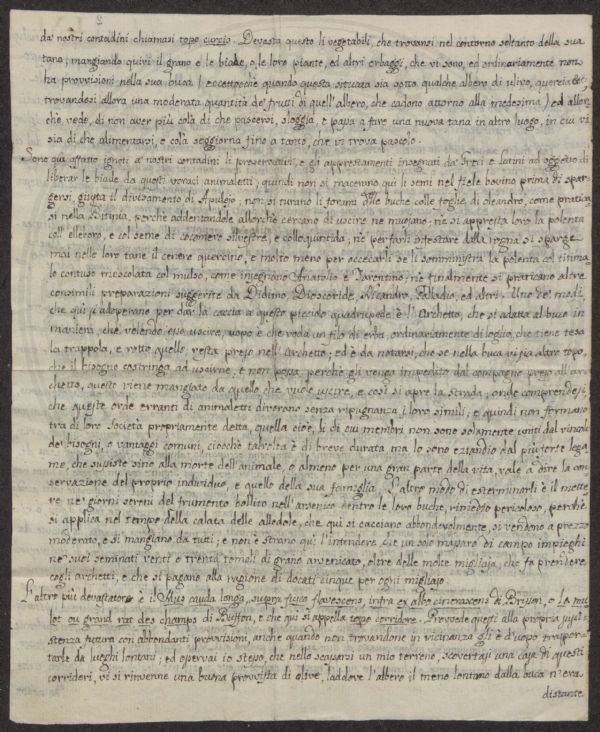 da' nostri contadini chiamasi topo curcio. Devasta questo li vegetabili, che trovansi nel contorno soltanto della sua
tana; mangiando quivi il grano e le biade, e le loro piante, ed altri erbaggi, che vi sono, ed ordinariamente non
ha provvisioni nella sua buca / eccettoché quando questa situata sia sotto qualche albero di ulivo, quercia &c.
trovandosi allora una moderata quantità de' frutti di quell'albero, che cadono attorno alla medesima / ed allor
che vede, di non aver più colà di che pascersi, sloggia, e passa a fare una nuova tana in altro luogo, in cui vi
sia di che alimentarsi, e colà soggiorna fino a tanto, che vi trova pascolo.
Sono qui affatto ignoti a' nostri contadini li preservativi, e gli apprestamenti insegnati da' Greci e Latini ad oggetto di
liberar le biade da questi voraci animaletti; quindi non si macerano qui li semi nel fiele bovino prima di spar-
gersi, giusta il divisamento di Apulejo; non si turano li forami delle buche colle foglie di oleandro, come pratica
si nella Bitinia, perchè addentandole allorchè cercano di uscire ne muojano; nè si appresta loro la polenta
coll'elleboro, e col seme di cocomero silvestre, e colloquintida; nè per farli infestare dalla rogna si sparge
mai nelle loro tane il cenere quercino, e molto meno per accecarli se li somministra la polenta col titima
lo contuso mescolata col mulso, come insegnano Anatolio e Tarentino; nè finalmente si praticano altre
consimili preparazioni suggerite da Didimo, Dioscoride, Nicandro, Palladio, ed altri. Uno de' modi
che qui s'adoperano per dar la caccia a questo picciolo quadrupede è l'Archetto, che si adatta al buco in
maniera, che volendo esso uscire, uopo è che roda un filo di erba, ordinariamente di loglio, che tiene tesa
la trappola, e rotto quello, resta preso nell'Archetto; ed è da notarsi, che se nella buca vi sia altro topo,
che il bisogno costringa ad uscirne, e non possa, perchè gli venga impedito dal compagno preso all'ar-
chetto, questo viene mangiato da quello che vuole uscire, e così si apre la strada; onde comprendesi,
che queste orde erranti di animaletti divorono senza ripugnanza i loro simili; e quindi non formasi
tra di loro società propriamente detta, quella cioè, li di cui membri non sono solamente uniti dal vincolo
de' bisogni, e vantaggi comuni, ciocchè talvolta è di breve durata ma lo sono eziandio dal più forte lega-
me, che sussiste sino alla morte dell'animale, o almeno per una gran parte della vita, vale a dire la con-
servazione del proprio individuo, e quello della sua famiglia. L'altro modo di esterminarli è il mette-
re ne' giorni sereni del frumento bollito nell'arsenico dentro le loro buche, rimedio pericoloso, perchè
si applica nel tempo della calata delle allodole, che qui si cacciano abbondevolmente, si vendono a prezzo
moderato, e si mangiano da tutti; e non è strano qui l'intendere che un solo massaro di campo impieghi
ne' suoi seminati venti e trenta tomoli di grano arsenicato, oltre delle molte migliaja, che fa prendere
cogli archetti, e che si pagano alla ragione di docati cinque per ogni migliajo.
L'altro più devastatore è il Mus cauda longa, supra fusco flavescens, infra ex albo cinerascens di Brisson, o Le mu
lot ou grand rat des champs di Buffon, e che qui si appella topo corridore. Provvede questi alla propria sussi-
stenza futura con abbondanti provvisioni, anche quando non trovandone in vicinanza gli è d'uopo traspor-
tarle da luoghi lontani; ed osservai io stesso, che nello scassarsi un mio terreno, scovertasi una casa di questi
corridori, vi si rinvenne una buona provvista di olive, laddove l'albero il meno lontano dalla buca n'era
distante